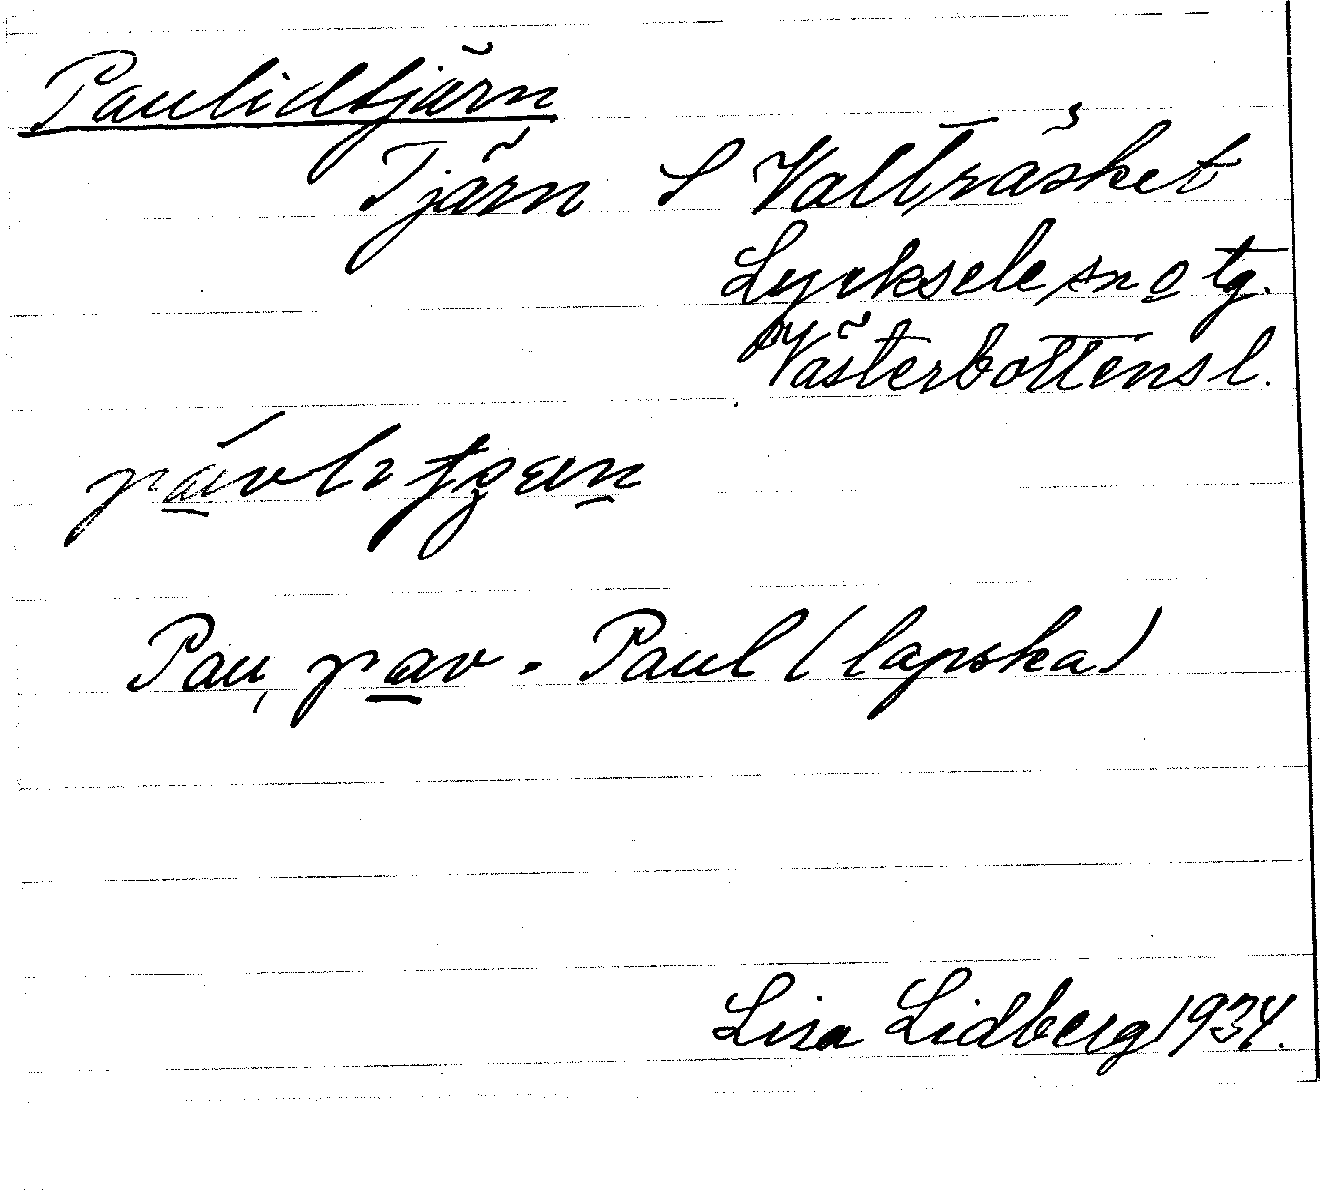 Paulidtjärn
Tjärn S Vallträsket
Lycksele sn o tg.
Västerbottens l.
Pau, pav. Paul (lapska)
Lisa Lidberg 1934.